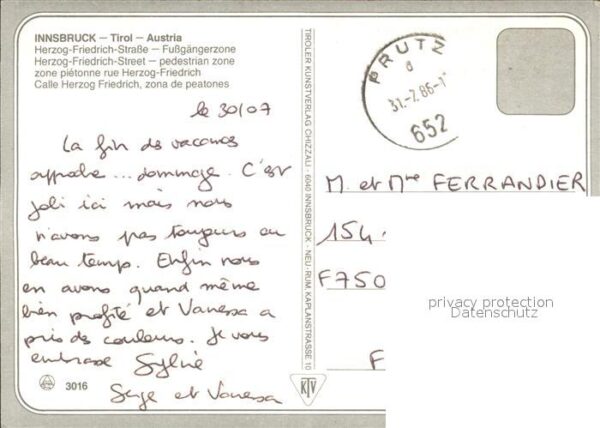 INNSBRUCK – Tirol – Austria
Herzog-Friedrich-Straße – Fußgängerzone
Herzog-Friedrich-Street – pedestrian zone
zone piétonne rue Herzog-Friedrich
Calle Herzog Friedrich, zona de peatones
le 30/07
La fin des vacances
approche ... dommage. C'est
joli ici mais nous
n'avons pas toujours eu
beau temps. Enfin nous
en avons quand même
bien profité et Vanessa a
pris des couleurs. Je vous
embrasse Sylvie
Serge et Vanessa
3016
TIROLER KUNSTVERLAG CHIZZALI · 6040 INNSBRUCK · NEU-RUM, KAPLANSTRASSE 10
KTV
PRUTZ
d
31.-7.86-1
6522
M. et Mme FERRANDIER
154
F750
F
privacy protection
Datenschutz